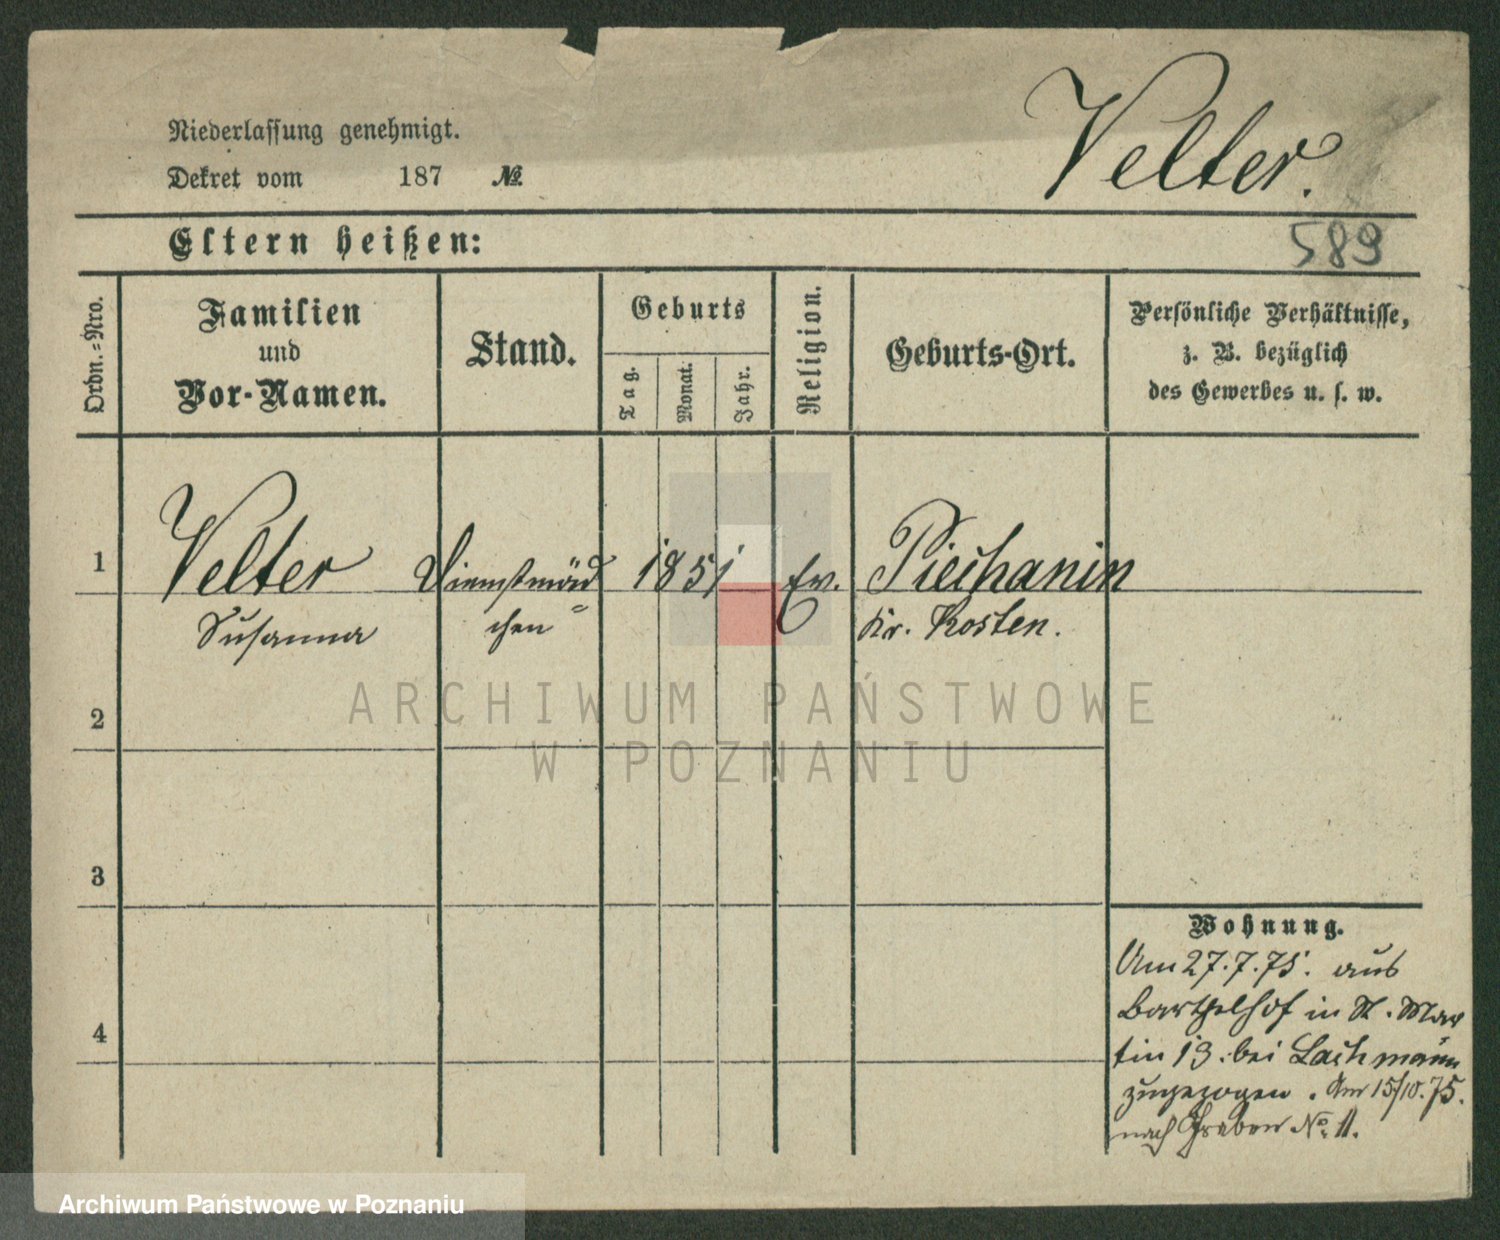 Velter.
Niederlassung genehmigt.
Dekret vom 187 №
589
Eltern heißen:
Ordn.-Nro.
Familien
und
Vor-Namen.
Stand.
Geburts
Tag.
Monat.
Jahr.
Religion.
Geburts-Ort.
Persönliche Verhältnisse,
z. B. bezüglich
des Gewerbes u. s. w.
1 Velter Dienstmäd 1851 Ev. Piechanin
Susanna chen Kr. Kosten.
2
3
4
Wohnung.
Am 27.7.75. aus
Barthelhof in St. Mar
tin 13. bei Lachmann
zugezogen. Am 15/10.75.
nach Graben No. 11.
ARCHIWUM PAŃSTWOWE
W POZNANIU
Archiwum Państwowe w Poznaniu